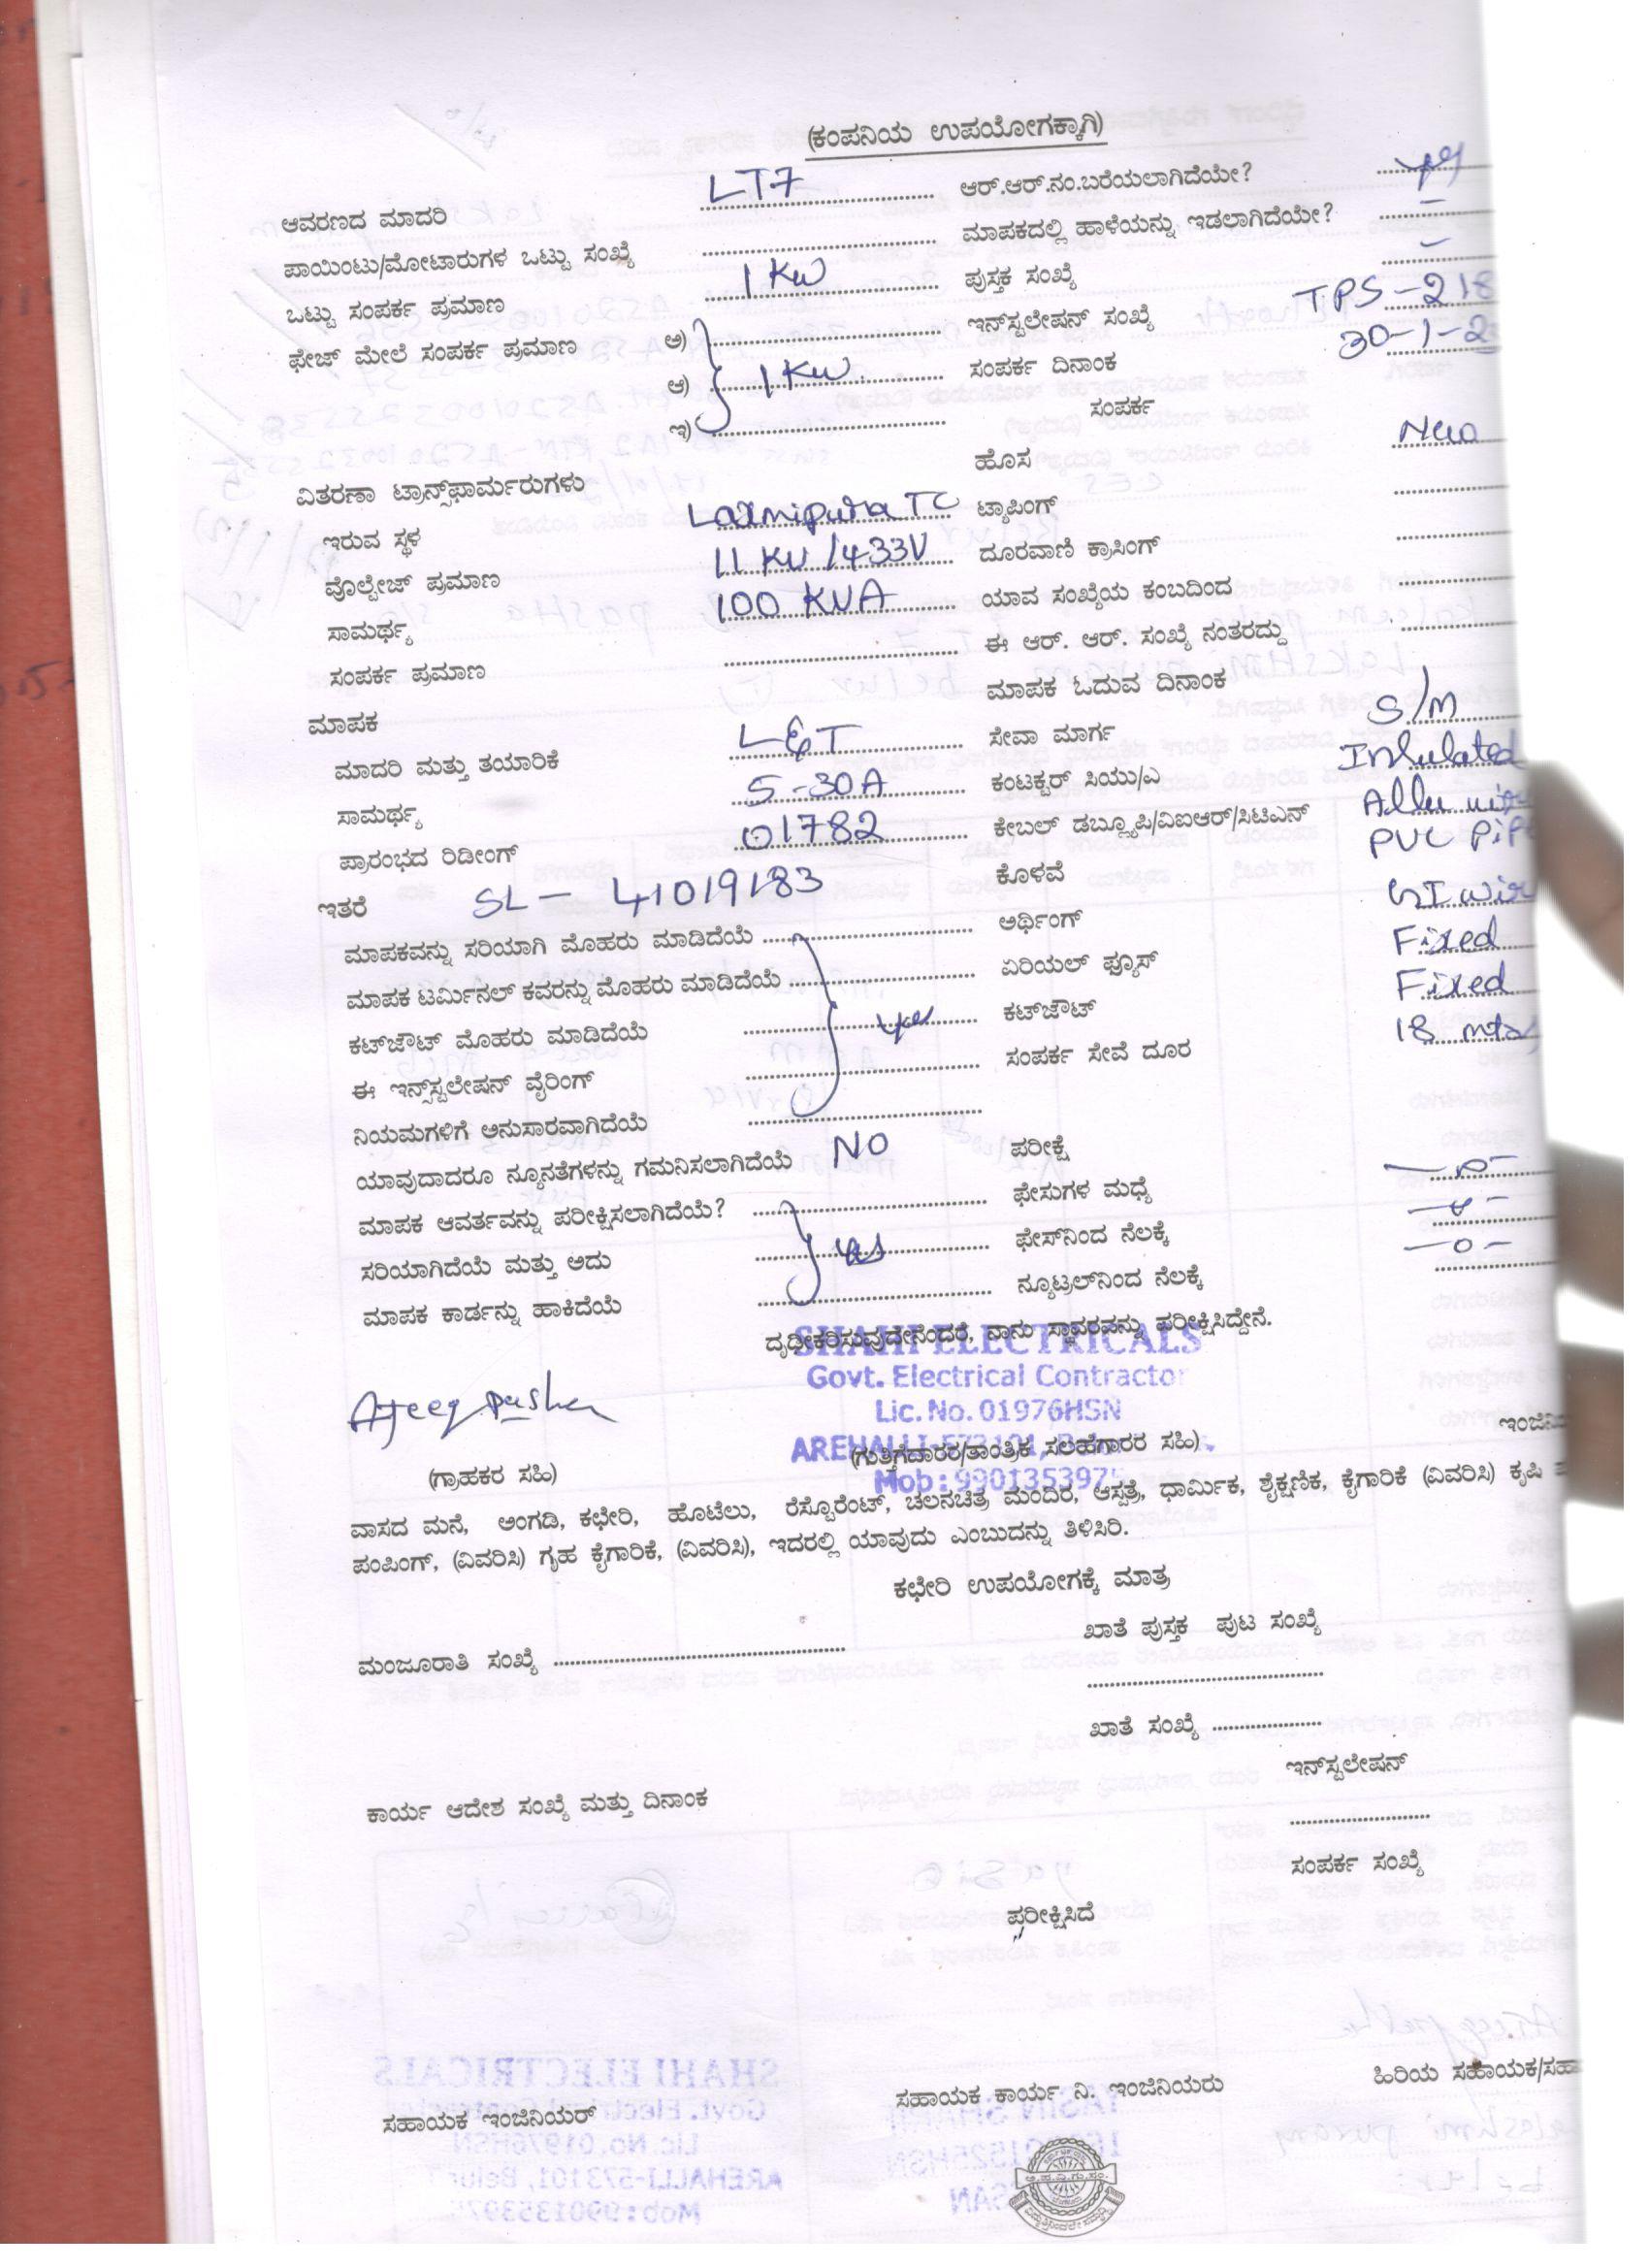 (ಕಂಪನಿಯ ಉಪಯೋಗಕ್ಕಾಗಿ)
ಆವರಣದ ಮಾದರಿ LT7 ಆರ್.ಆರ್.ನಂ.ಬರೆಯಲಾಗಿದೆಯೇ?
ಪಾಯಿಂಟು/ಮೋಟಾರುಗಳ ಒಟ್ಟು ಸಂಖ್ಯೆ ಮಾಪಕದಲ್ಲಿ ಹಾಳೆಯನ್ನು ಇಡಲಾಗಿದೆಯೇ? –
ಒಟ್ಟು ಸಂಪರ್ಕ ಪ್ರಮಾಣ 1 KW ಪುಸ್ತಕ ಸಂಖ್ಯೆ –
ಫೇಜ್ ಮೇಲೆ ಸಂಪರ್ಕ ಪ್ರಮಾಣ ಅ) ಇನ್‌ಸ್ಟಲೇಷನ್ ಸಂಖ್ಯೆ TPS-218
ಆ) 1 KW. ಸಂಪರ್ಕ ದಿನಾಂಕ 30-1-2
ಇ) ಸಂಪರ್ಕ
ಹೊಸ New
ವಿತರಣಾ ಟ್ರಾನ್ಸ್‌ಫಾರ್ಮರುಗಳು
ಇರುವ ಸ್ಥಳ Laxmipura TC ಟ್ಯಾಪಿಂಗ್
ವೊಲ್ಟೇಜ್ ಪ್ರಮಾಣ 11 KV /433V ದೂರವಾಣಿ ಕ್ರಾಸಿಂಗ್
ಸಾಮರ್ಥ್ಯ 100 KVA ಯಾವ ಸಂಖ್ಯೆಯ ಕಂಬದಿಂದ
ಸಂಪರ್ಕ ಪ್ರಮಾಣ ಈ ಆರ್. ಆರ್. ಸಂಖ್ಯೆ ನಂತರದ್ದು
ಮಾಪಕ ಮಾಪಕ ಓದುವ ದಿನಾಂಕ
ಮಾದರಿ ಮತ್ತು ತಯಾರಿಕೆ L&T ಸೇವಾ ಮಾರ್ಗ S/M
ಸಾಮರ್ಥ್ಯ 5-30A ಕಂಟಕ್ಟರ್ ಸಿಯು/ಎ Insulated
ಪ್ರಾರಂಭದ ರಿಡೀಂಗ್ 01782 ಕೇಬಲ್ ಡಬ್ಲ್ಯೂಪಿ/ವಿಐಆರ್/ಸಿಟಿಎನ್
ಇತರೆ SL - 41019183 ಕೊಳವೆ PVC Pipe
ಮಾಪಕವನ್ನು ಸರಿಯಾಗಿ ಮೊಹರು ಮಾಡಿದೆಯೆ ಅರ್ಥಿಂಗ್ GI wire
ಮಾಪಕ ಟರ್ಮಿನಲ್ ಕವರನ್ನು ಮೊಹರು ಮಾಡಿದೆಯೆ ಏರಿಯಲ್ ಫ್ಯೂಸ್ Fixed
ಕಟ್‌ಜೌಟ್ ಮೊಹರು ಮಾಡಿದೆಯೆ yes ಕಟ್‌ಜೌಟ್ Fixed
ಈ ಇನ್ಸ್‌ಸ್ಟಲೇಷನ್ ವೈರಿಂಗ್ ಸಂಪರ್ಕ ಸೇವೆ ದೂರ 18
ನಿಯಮಗಳಿಗೆ ಅನುಸಾರವಾಗಿದೆಯೆ
ಯಾವುದಾದರೂ ನ್ಯೂನತೆಗಳನ್ನು ಗಮನಿಸಲಾಗಿದೆಯೆ NO ಪರೀಕ್ಷೆ
ಮಾಪಕ ಆವರ್ತವನ್ನು ಪರೀಕ್ಷಿಸಲಾಗಿದೆಯೆ? ಫೇಸುಗಳ ಮಧ್ಯೆ
ಸರಿಯಾಗಿದೆಯೆ ಮತ್ತು ಅದು yes ಫೇಸ್‌ನಿಂದ ನೆಲಕ್ಕೆ
ಮಾಪಕ ಕಾರ್ಡನ್ನು ಹಾಕಿದೆಯೆ ನ್ಯೂಟ್ರಲ್‌ನಿಂದ ನೆಲಕ್ಕೆ –0–
ದೃಢೀಕರಿಸುವುದೇನೆಂದರೆ, ನಾನು ಸ್ಥಾವರವನ್ನು ಪರೀಕ್ಷಿಸಿದ್ದೇನೆ.
SHAHI ELECTRICALS
Govt. Electrical Contractor
Lic. No. 01976HSN
AREHALLI-573101,
Mob: 990135397
(ಗ್ರಾಹಕರ ಸಹಿ) (ಗುತ್ತಿಗೆದಾರರ/ತಾಂತ್ರಿಕ ಸಲಹೆಗಾರರ ಸಹಿ)
ವಾಸದ ಮನೆ, ಅಂಗಡಿ, ಕಛೇರಿ, ಹೊಟೆಲು, ರೆಸ್ಟೊರೆಂಟ್, ಚಲನಚಿತ್ರ ಮಂದಿರ, ಆಸ್ಪತ್ರೆ, ಧಾರ್ಮಿಕ, ಶೈಕ್ಷಣಿಕ, ಕೈಗಾರಿಕೆ (ವಿವರಿಸಿ) ಕೃಷಿ
ಪಂಪಿಂಗ್, (ವಿವರಿಸಿ) ಗೃಹ ಕೈಗಾರಿಕೆ, (ವಿವರಿಸಿ), ಇದರಲ್ಲಿ ಯಾವುದು ಎಂಬುದನ್ನು ತಿಳಿಸಿರಿ.
ಕಛೇರಿ ಉಪಯೋಗಕ್ಕೆ ಮಾತ್ರ
ಖಾತೆ ಪುಸ್ತಕ ಪುಟ ಸಂಖ್ಯೆ
ಮಂಜೂರಾತಿ ಸಂಖ್ಯೆ
ಖಾತೆ ಸಂಖ್ಯೆ
ಇನ್‌ಸ್ಟಲೇಷನ್
ಕಾರ್ಯ ಆದೇಶ ಸಂಖ್ಯೆ ಮತ್ತು ದಿನಾಂಕ
ಸಂಪರ್ಕ ಸಂಖ್ಯೆ
ಪರೀಕ್ಷಿಸಿದೆ
ಸಹಾಯಕ ಇಂಜಿನಿಯರ್ ಸಹಾಯಕ ಕಾರ್ಯ ನಿ. ಇಂಜಿನಿಯರು ಹಿರಿಯ ಸಹಾಯಕ/ಸಹಾ